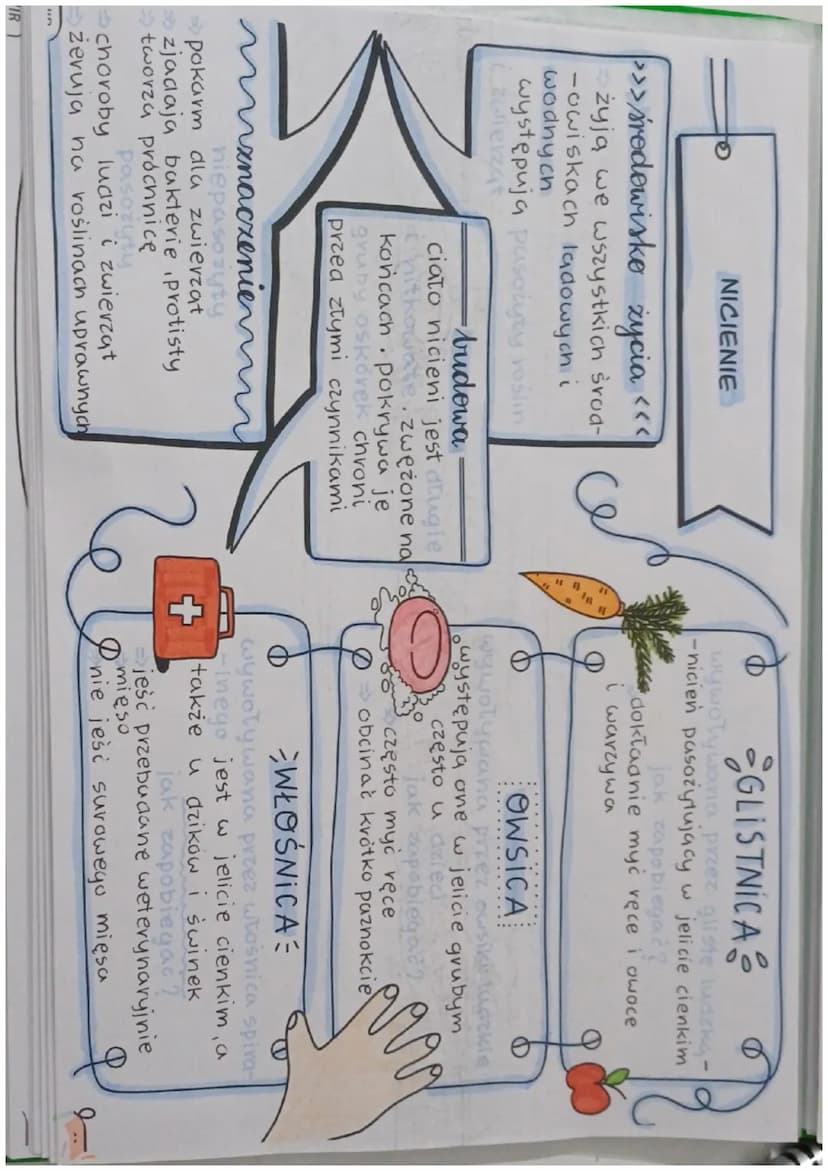 NICIENIE
>>>środowisko życia<<<
⇒ żyją we wszystkich środ-
-owiskach lądowych i
wodnych
występują pasożyty roślin
i zwierząt
budowa
ciało nicieni jest długie
i nitkowate, zwężone na
końcach. pokrywa je
gruby oskórek chroni
przed złymi czynnikami
znaczenie
niepasożyty
⇒ pokarm dla zwierząt
⇒ zjadają bakterie, protisty
⇒ tworzą próchnicę
pasożyty
⇒ choroby ludzi i zwierząt
⇒ żerują na roślinach uprawnych
GLISTNICA
wywoływana przez glistę ludzką-
-nicień pasożytujący w jelicie cienkim
jak zapobiegać?
dokładnie myć ręce i owoce
i warzywa
OWSICA
wywoływana przez owsiki ludzkie
występują one w jelicie grubym
często u dzieci
jak zapobiegać?
⇒ często myć ręce
⇒ obcinać krótko paznokcie
WŁOŚNICA
wywoływana przez włośnica spira-
-lnego jest w jelicie cienkim, a
także u dzików i świnek
jak zapobiegać?
⇒ jeść przebadane weterynaryjnie
mięso
⇒ nie jeść surowego mięsa